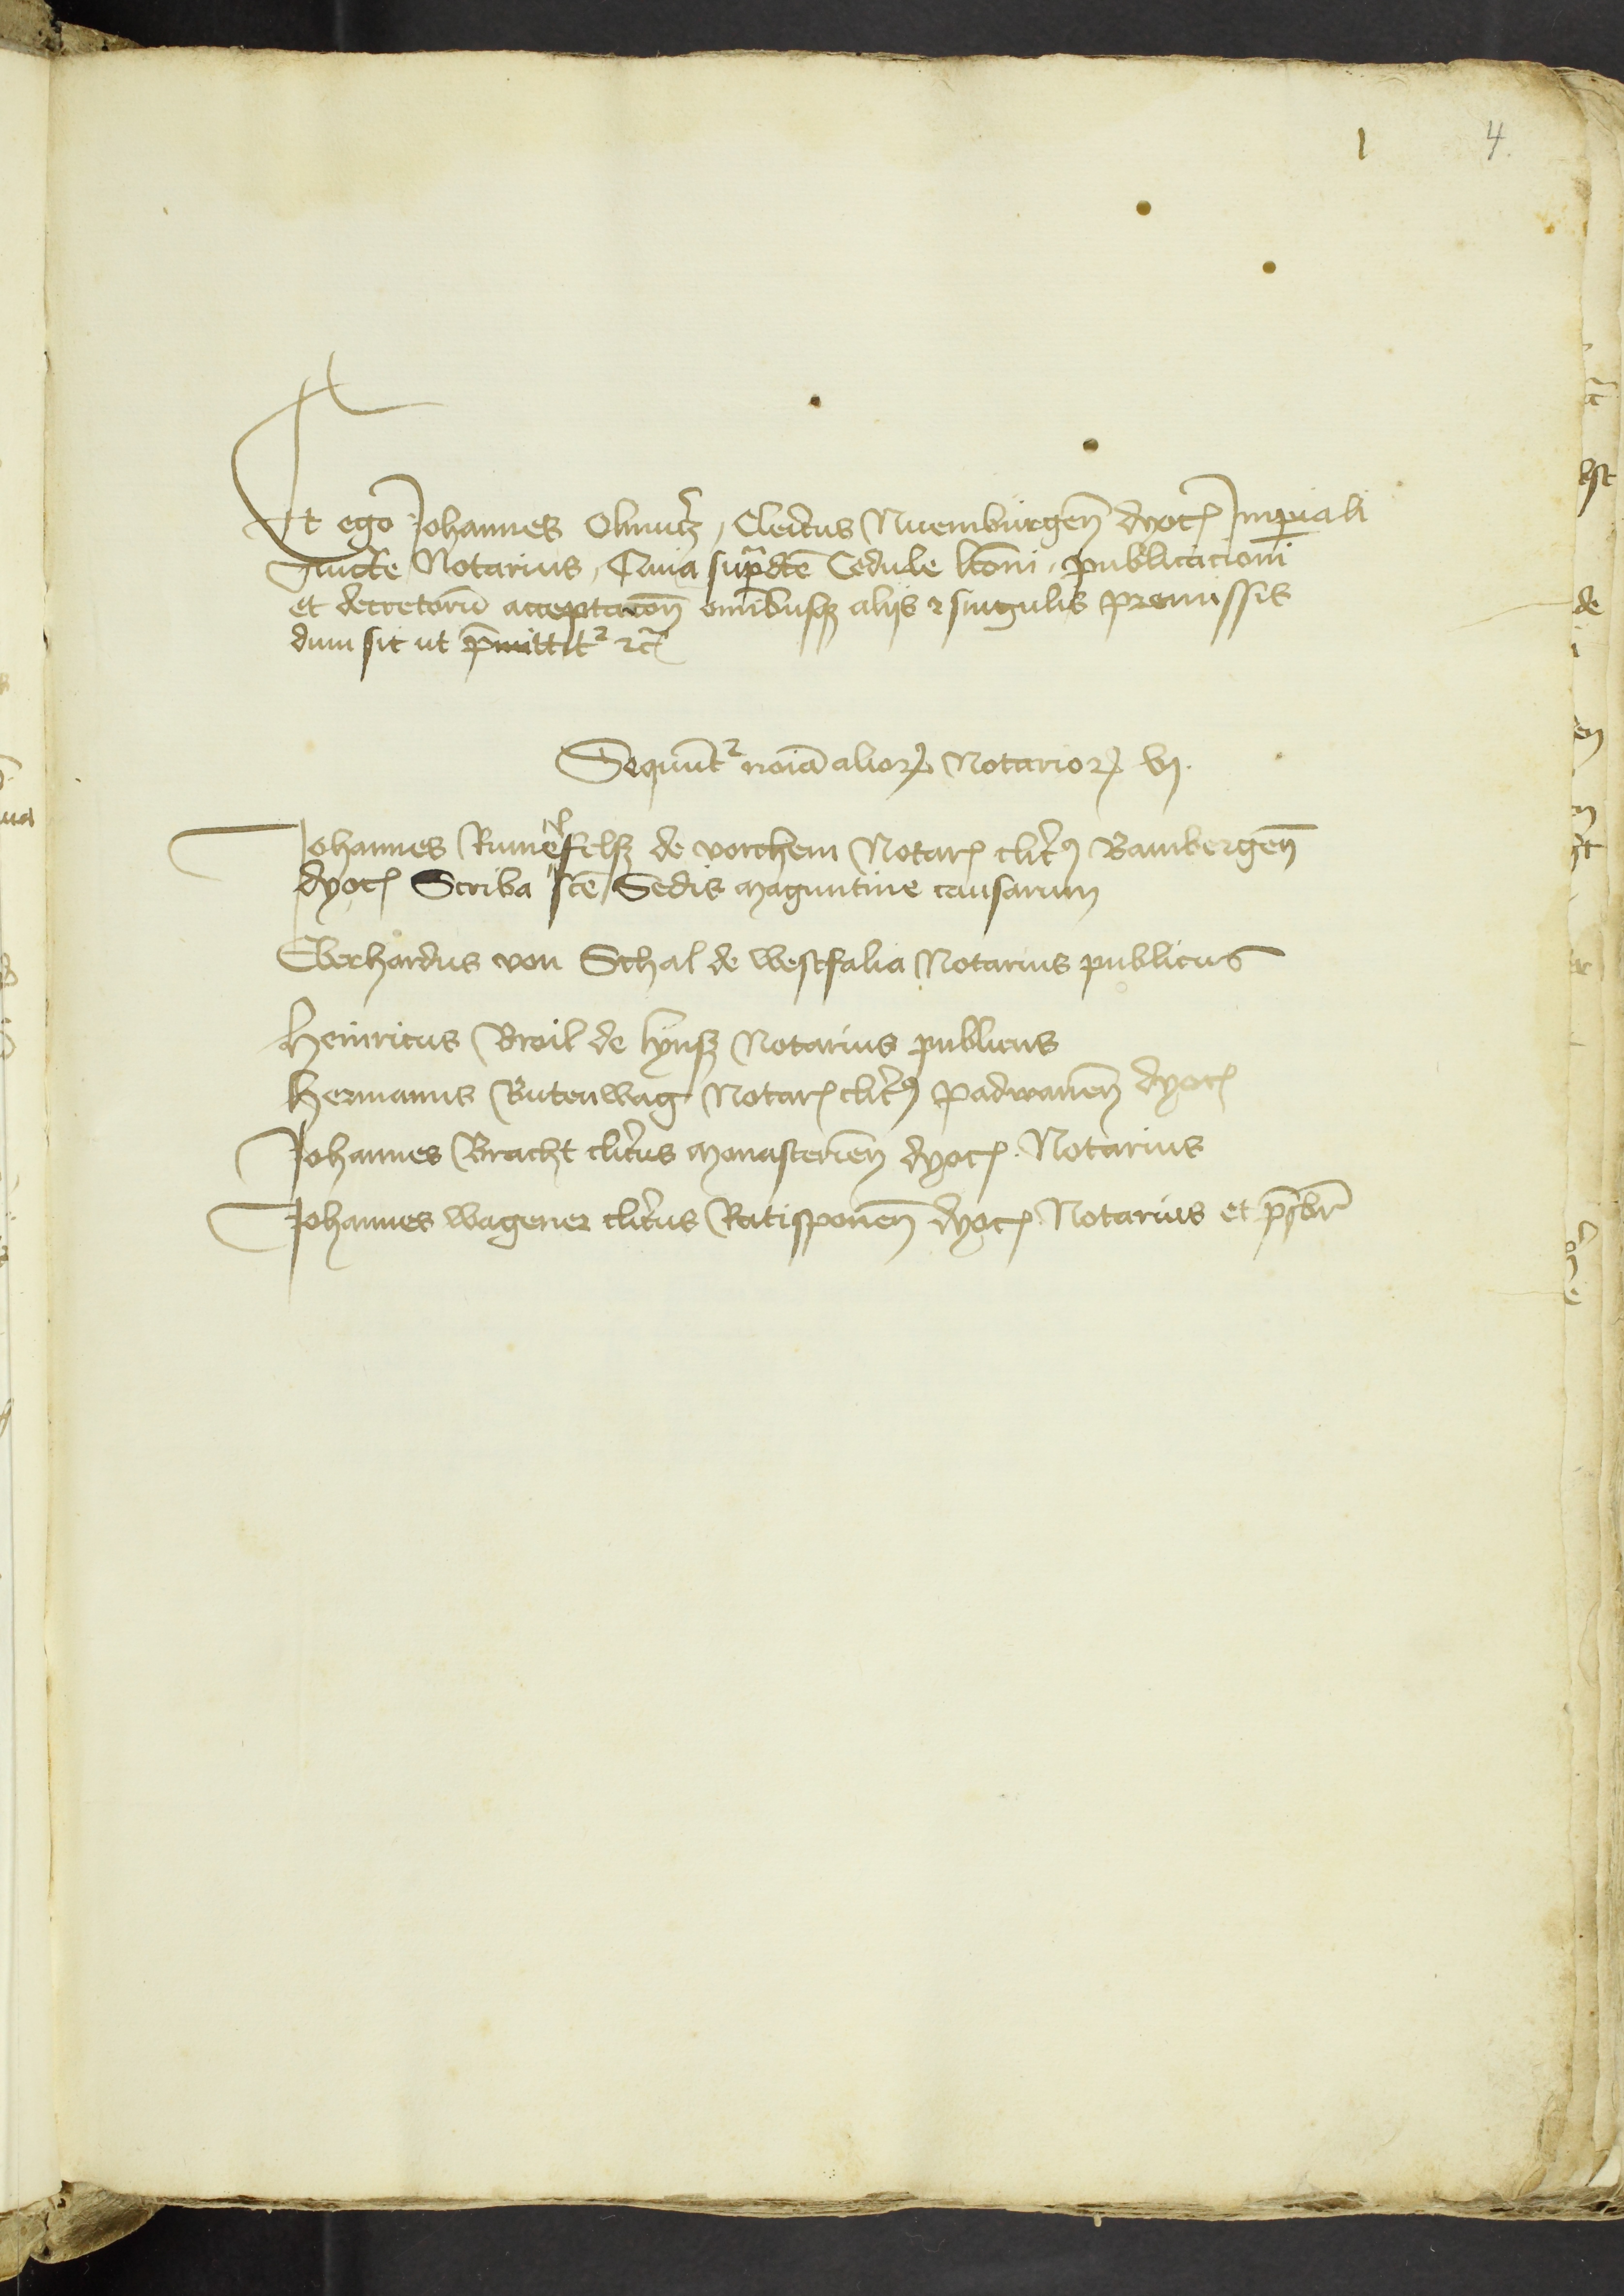 1 4.
Et ego Johannes Olmutz, Clericus Nuemburgen̄ dyoc̄ Imperiali
Aucte Notarius, Quia supradc̄te Cedule lc̄oni, publicacioni
et decretorū acceptacōn̄ omībusqꝫ alijs ⁊ singulis premissis
dum sic ut p̄mittit᷑ ⁊c̄
Sequūt᷑ noīa alioꝝ Notarioꝝ vj.
Johannes Rumelfelsz de vorchem Notar̄ cli̅cꝰ Bambergen̄
dyoc̄ Scriba sc̄e Sedis Maguntine causarum
Eberhardus von Schal de westfalia Notarius publicus
Heinricus Broil de lynsz Notarius publicus
Hermannus Rutenwag Notar̄ cli̅cꝰ padwanen̄ dyoc̄
Johannes Bracht cli̅cus Monasterien̄ dyoc̄. Notarius
Johannes wagener cli̅cus Ratisponen̄ dyoc̄. Notarius et p̄sbr̄